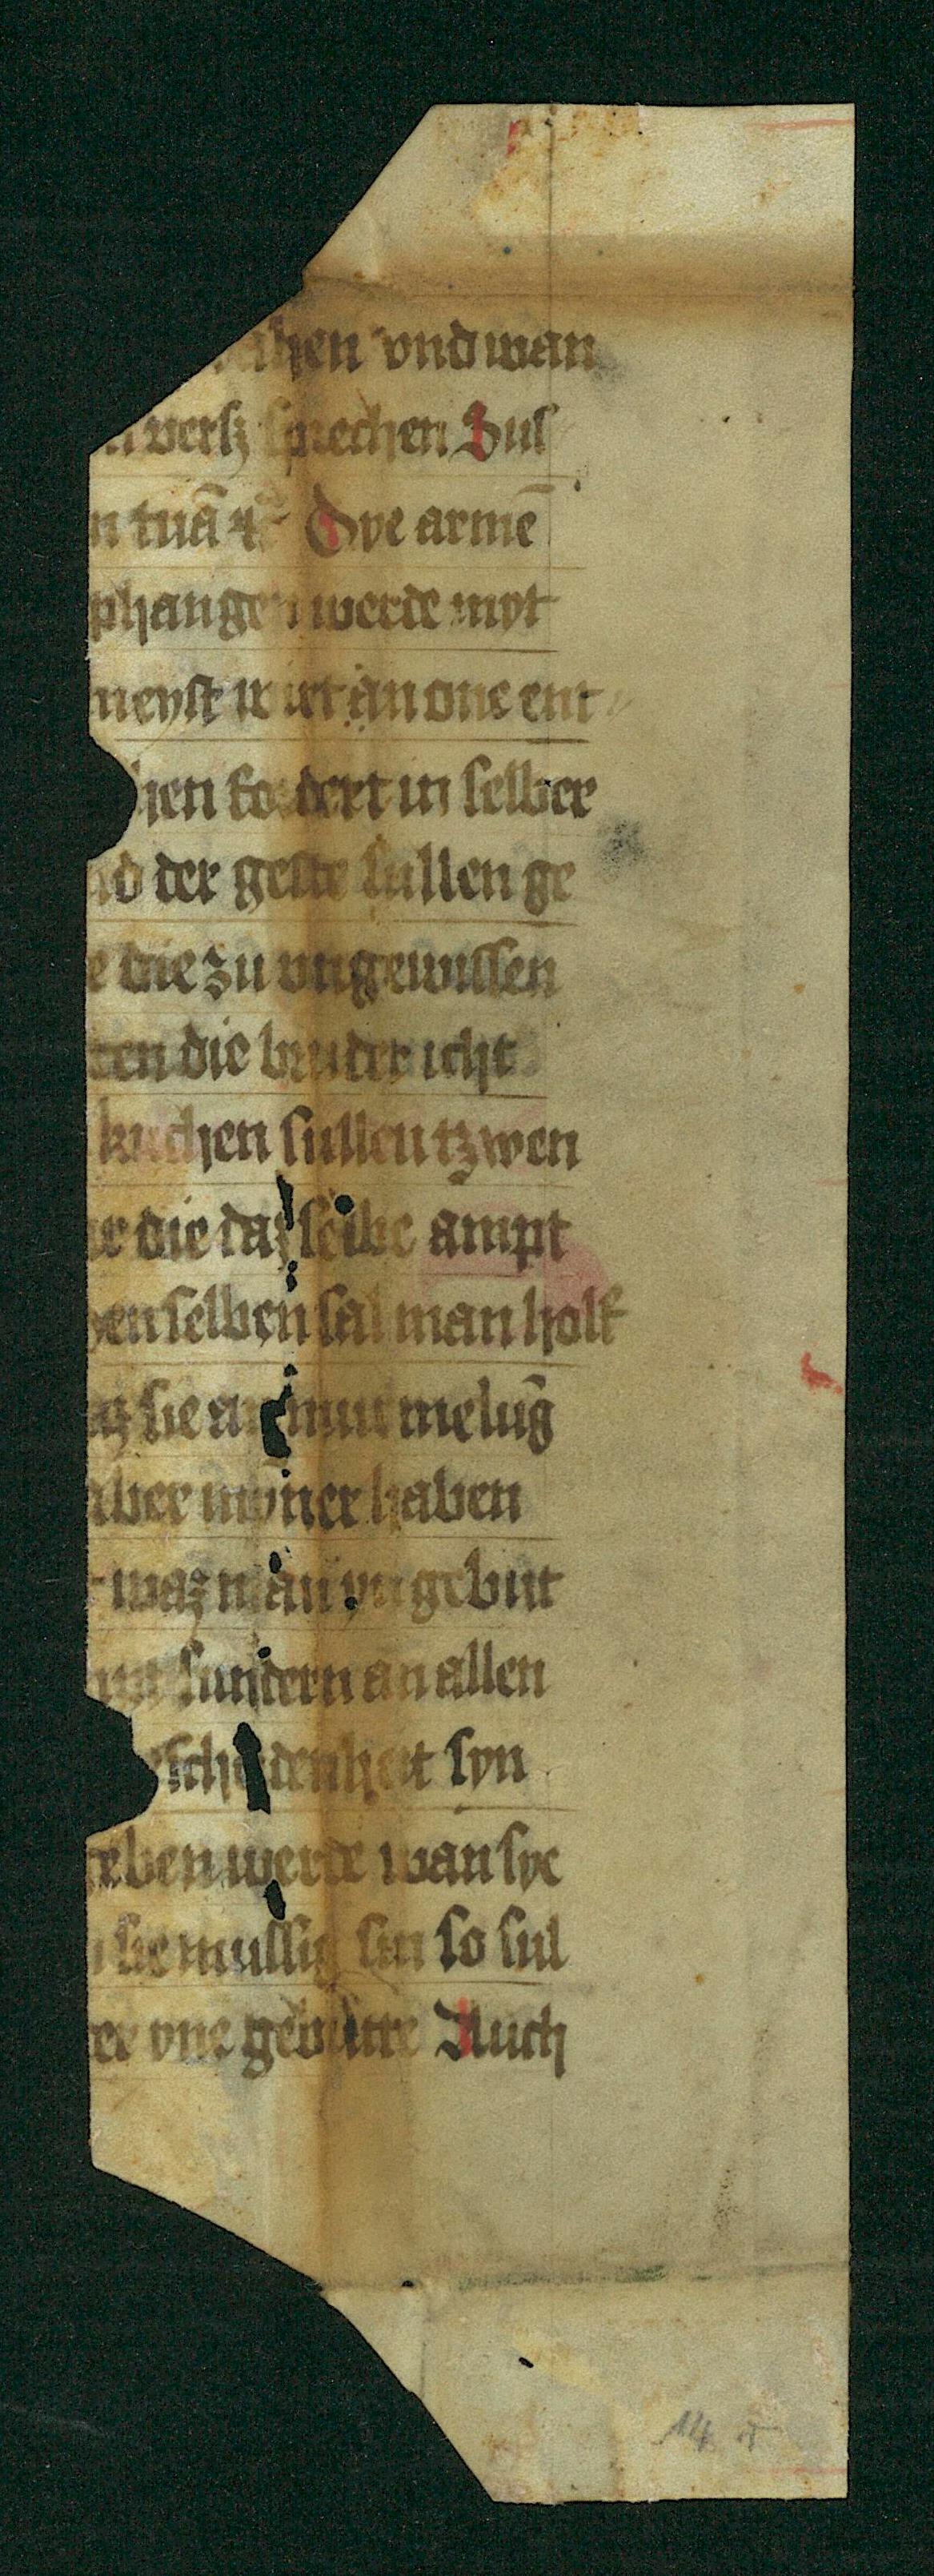 ahen vnd wan
versz sprechen Sus
n tuā Dye armē
phangen werde myt
meyst wirt an one ent
hen fordert in selber
nd der geste sullen ge
e die zu vngewissen
ten die bruder icht
kuchen sullen tzwen
er die daz selbe ampt
den selben sal man holf
az sie an murmelūg
aber mȳner haben
waz man yn gebut
sundern an allen
eschedenheit syn
geben werde wan sye
sie mussig sin so sul
er yne gebutte Auch
14 r